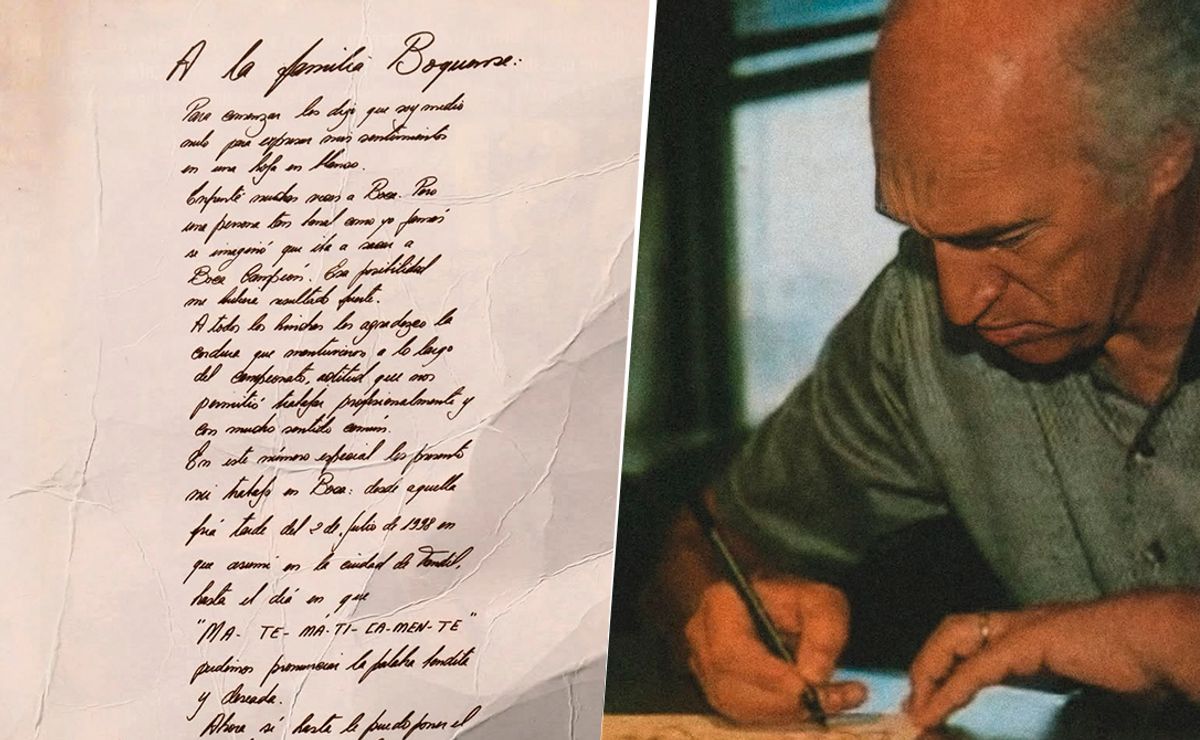 A la familia Boquense:
Para comenzar les digo que soy medio
nulo para expresar mis sentimientos
en una hoja en blanco.
Enfrenté muchas veces a Boca. Pero
una persona tan banal como yo jamás
se imaginó que iba a sacar a
Boca Campeón. Esa posibilidad
me hubiera resultado fuerte.
A todos los hinchas les agradezco la
cordura que mantuvieron a lo largo
del campeonato, actitud que nos
permitió trabajar profesionalmente y
con mucho sentido común.
En este número especial les presento
mi trabajo en Boca: desde aquella
fría tarde del 2 de Julio de 1998 en
que asumí en la ciudad de Tandil,
hasta el día en que
"MA-TE-MÁ-TI-CA-MEN-TE"
pudimos pronunciar la palabra bendita
y deseada.
Ahora sí hasta le puedo poner el